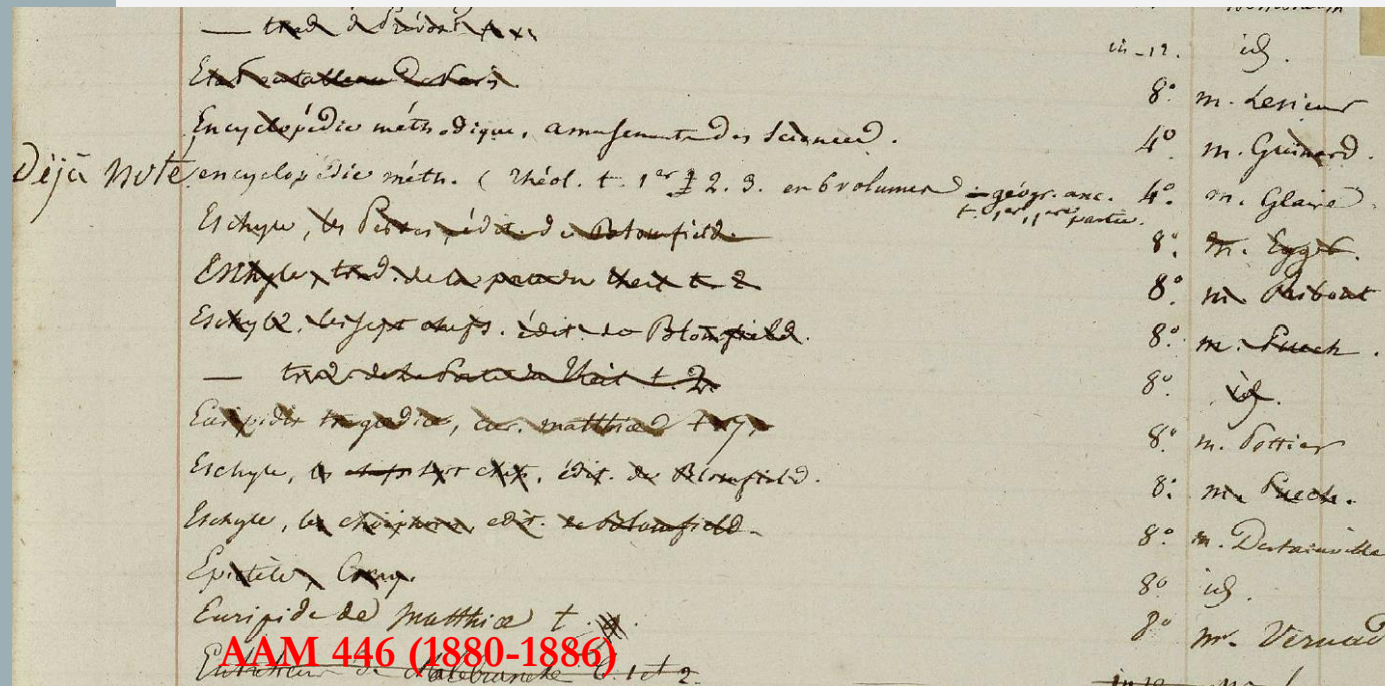 — trad. de Prévost in-12. id.
Etat ou tableau de Paris. 8° m. Lesieur
Encyclopédie méthodique, amusements des Sciences. 4° m. Guinard.
Déjà noté encyclopédie méth. (Théol. t. 1er 2. 3. en 6 volumes) – géogr. anc. t. 1er, 1ère partie. 4° m. Glaire
Eschyle, les Perses, édit. de Blomfield. 8° m. Egger.
Eschyle, trad. de la porte du Theil t. 2 8° m. Ribout
Eschyle. les sept chefs. édit. de Blomfield. 8° m. Puech.
— trad. de La Porte du Theil t. 2. 8° id.
Euripidis tragoediae, cur. matthiae t. 7, 8° m. Pottier
Eschyle, les sept chefs, édit. de Blomfield. 8° m. Puech.
Eschyle, les choéphores, edit. de Blomfield. 8° m. Destainville
Epictète, Coray. 8° id.
Euripide de Matthiae t. 8° mr.
AAM 446 (1880-1886)
de Malebranche t. 1 et 2. in 12